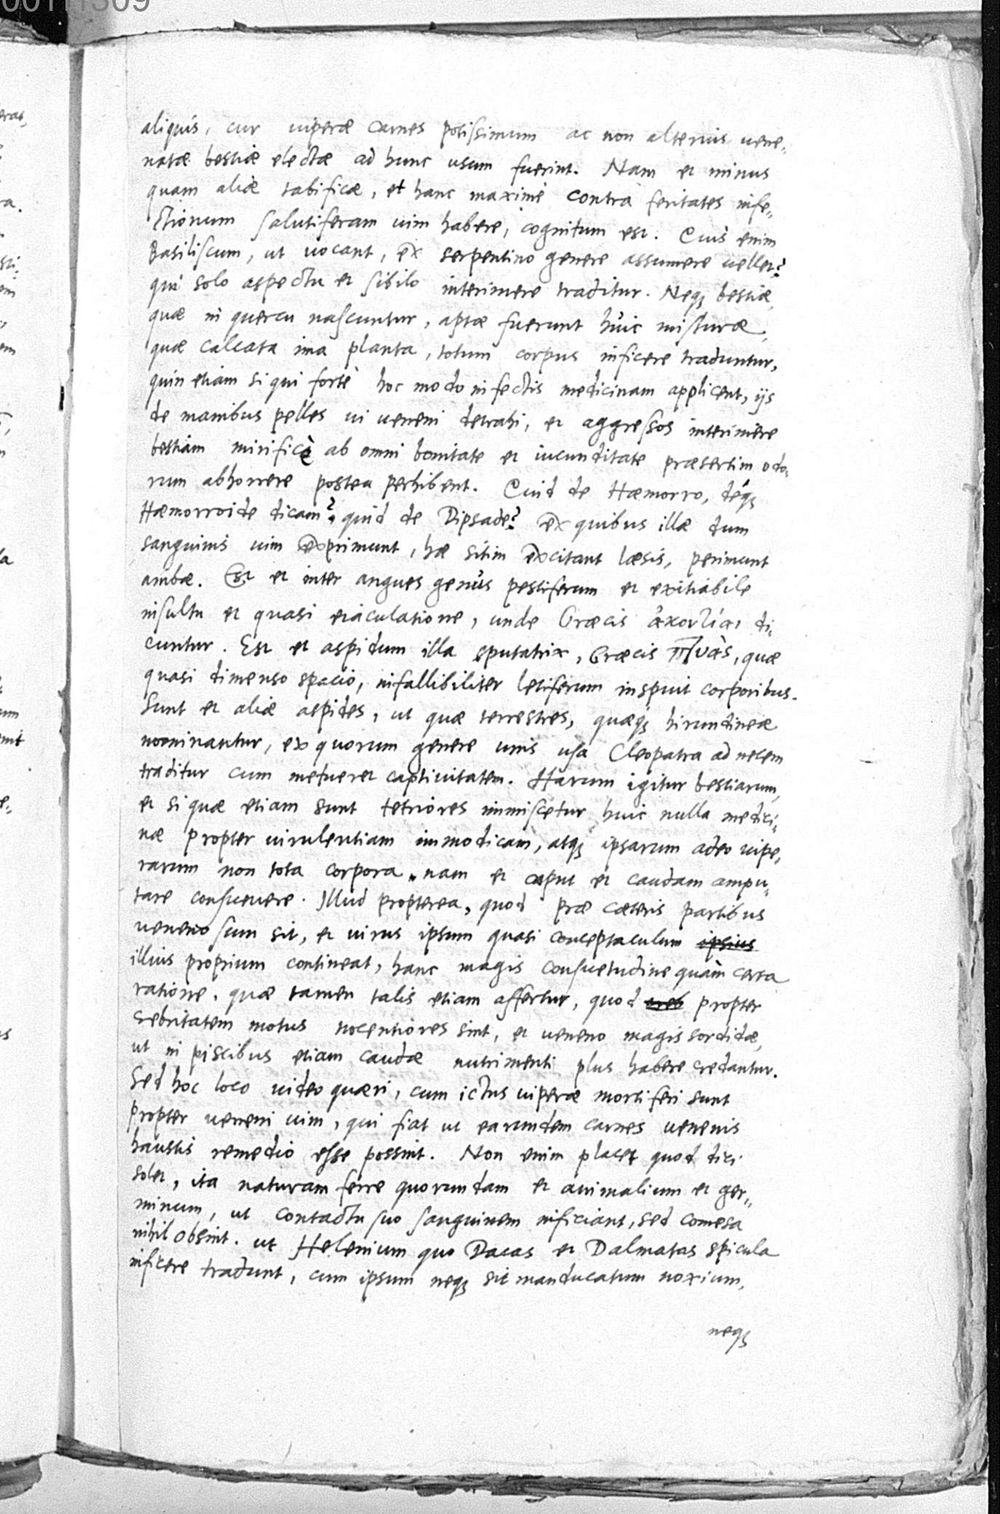 aliquis, cur uiperæ carnes potissimum ac non alterius uene-
natæ bestiæ electæ ad hunc usum fuerint. Nam et minus
quam aliæ tabificæ, et hanc maximè contra feritates infe-
ctionum salutiferam uim habere, cognitum est. Quis enim
Basiliscum, ut uocant, ex serpentino genere assumere uellet?
qui solo aspectu et sibilo interimere traditur. Neq; bestiæ,
quæ in quercu nascuntur, aptæ fuerunt huic misturæ,
quæ calcata ima planta, totum corpus inficere traduntur,
quin etiam si qui fortè hoc modo infectis medicinam applicent, ijs
de manibus pelles ui ueneni detrahi, et aggressos interimere
bestiam mirificè ab omni bonitate et iucunditate præsertim odo-
rum abhorrere postea perhibent. Quid de Hæmorro, deq;
Hæmorroide dicam? quid de Dipsade? ex quibus illæ dum
sanguinis uim exprimunt, hæ sitim excitant læsis, perimunt
ambæ. Est et inter angues genus pestiferum et exitiabile
insultu et quasi eiaculatione, unde Græcis ἀκοντίαι di-
cuntur. Est et aspidum illa sputatrix, Græcis πτυὰς, quæ
quasi dimenso spacio, infallibiliter letiferum inspuit corporibus.
Sunt et aliæ aspides, ut quæ terrestres, quæq; hirundineæ
nominantur, ex quorum genere unis usa Cleopatra ad necem
traditur cum metueret captiuitatem. Harum igitur bestiarum,
et si quæ etiam sunt tetriores immiscetur huic nulla medici-
næ propter uirulentiam immodicam, atq; ipsarum adeo uipe-
rarum non tota corpora. nam et caput et caudam ampu-
tare consueuere. Illud propterea, quod præ cæteris partibus
uenenosum sit, et uirus ipsum quasi conceptaculum ipsius
illius proprium contineat, hanc magis consuetudine quàm certa
ratione. quæ tamen talis etiam affertur, quod creb propter
crebritatem motus nocentiores sint, et ueneno magis sordidæ,
ut in piscibus etiam caudæ nutrimenti plus habere credantur.
Sed hoc loco uideo quæri, cum ictus uiperæ mortiferi sunt
propter ueneni uim, qui fiat ut earundem carnes uenenis
haustis remedio esse possint. Non enim placet quod dici
solet, ita naturam ferre quorundam et animalium et ger-
minum, ut contactu suo sanguinem inficiant, sed comesa
nihil obsint. ut Helenium quo Dacas et Dalmatas spicula
inficere tradunt, cum ipsum neq; sit manducatum noxium,
neq;